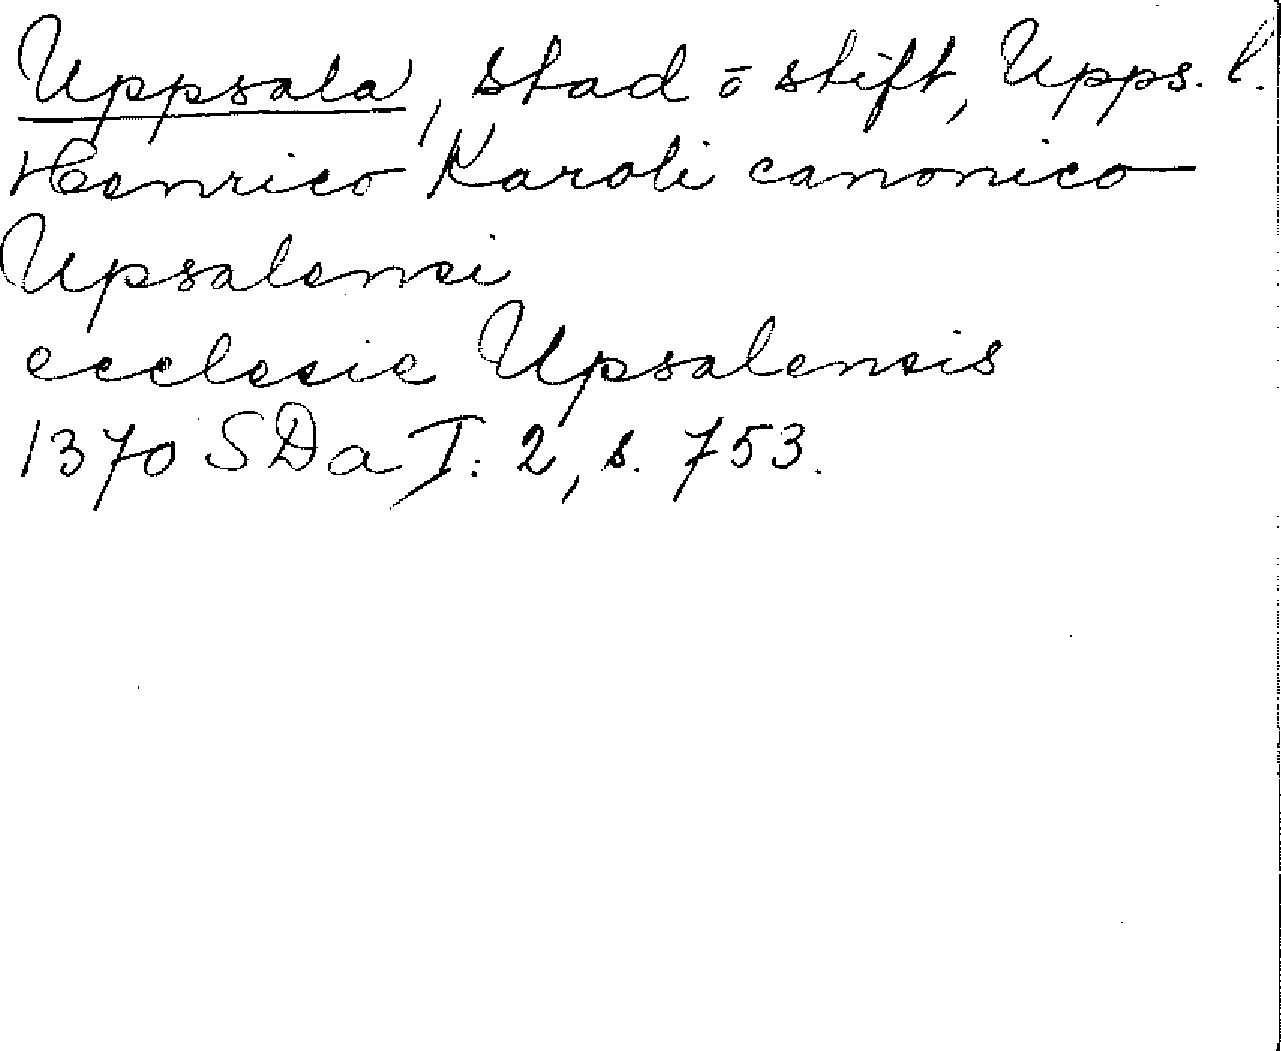 Uppsala, stad ō stift, Upps. l.
Henrico Karoli canonico
Upsalensi
ecclesie Upsalensis
1370 SDa I: 2, s. 753.